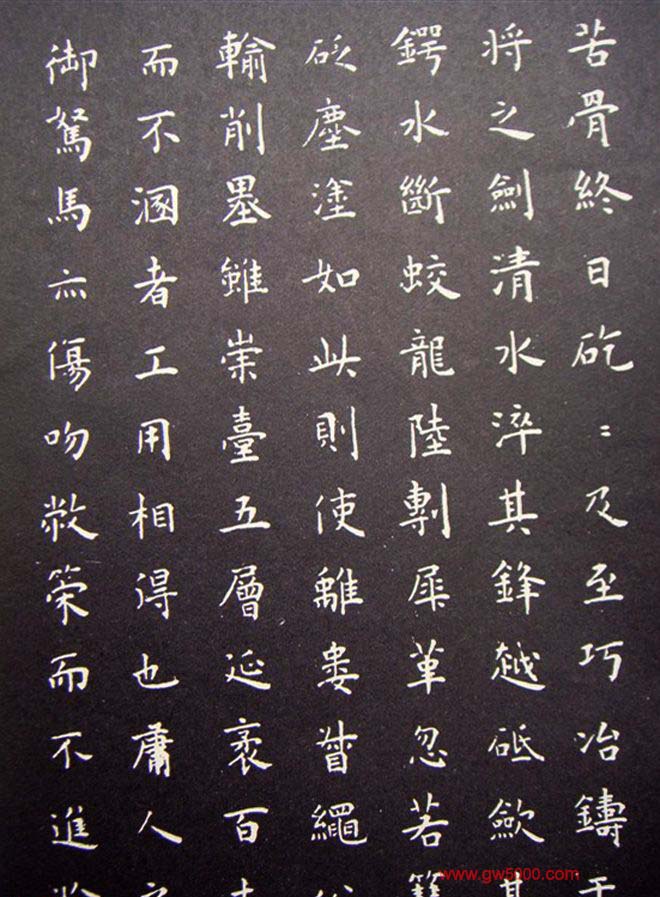 苦骨終日矻〻及至巧冶鑄
将之劍清水淬其鋒越砥歛
鍔水斷蛟龍陸剸犀革忽若
砭塵塗如此則使離婁督繩
輸削墨雖崇臺五層延袤百
而不溷者工用相得也庸人
御駑馬亦傷吻敝策而不進
www.gw5000.com